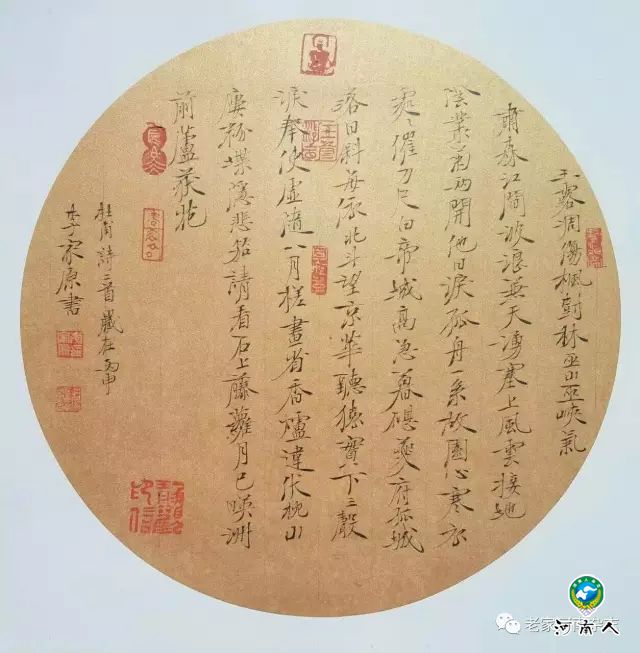 玉露凋傷楓樹林巫山巫峽氣
蕭森江間波浪兼天湧塞上風雲接地
陰叢菊兩開他日淚孤舟一系故園心寒衣
處處催刀尺白帝城高急暮砧夔府孤城
落日斜每依北斗望京華聽猿實下三聲
淚奉使虛隨八月槎畫省香爐違伏枕山
樓粉堞隱悲笳請看石上藤蘿月已映洲
前蘆荻花
杜甫詩二首歲在丙申
李家原書
老家河南
河南人